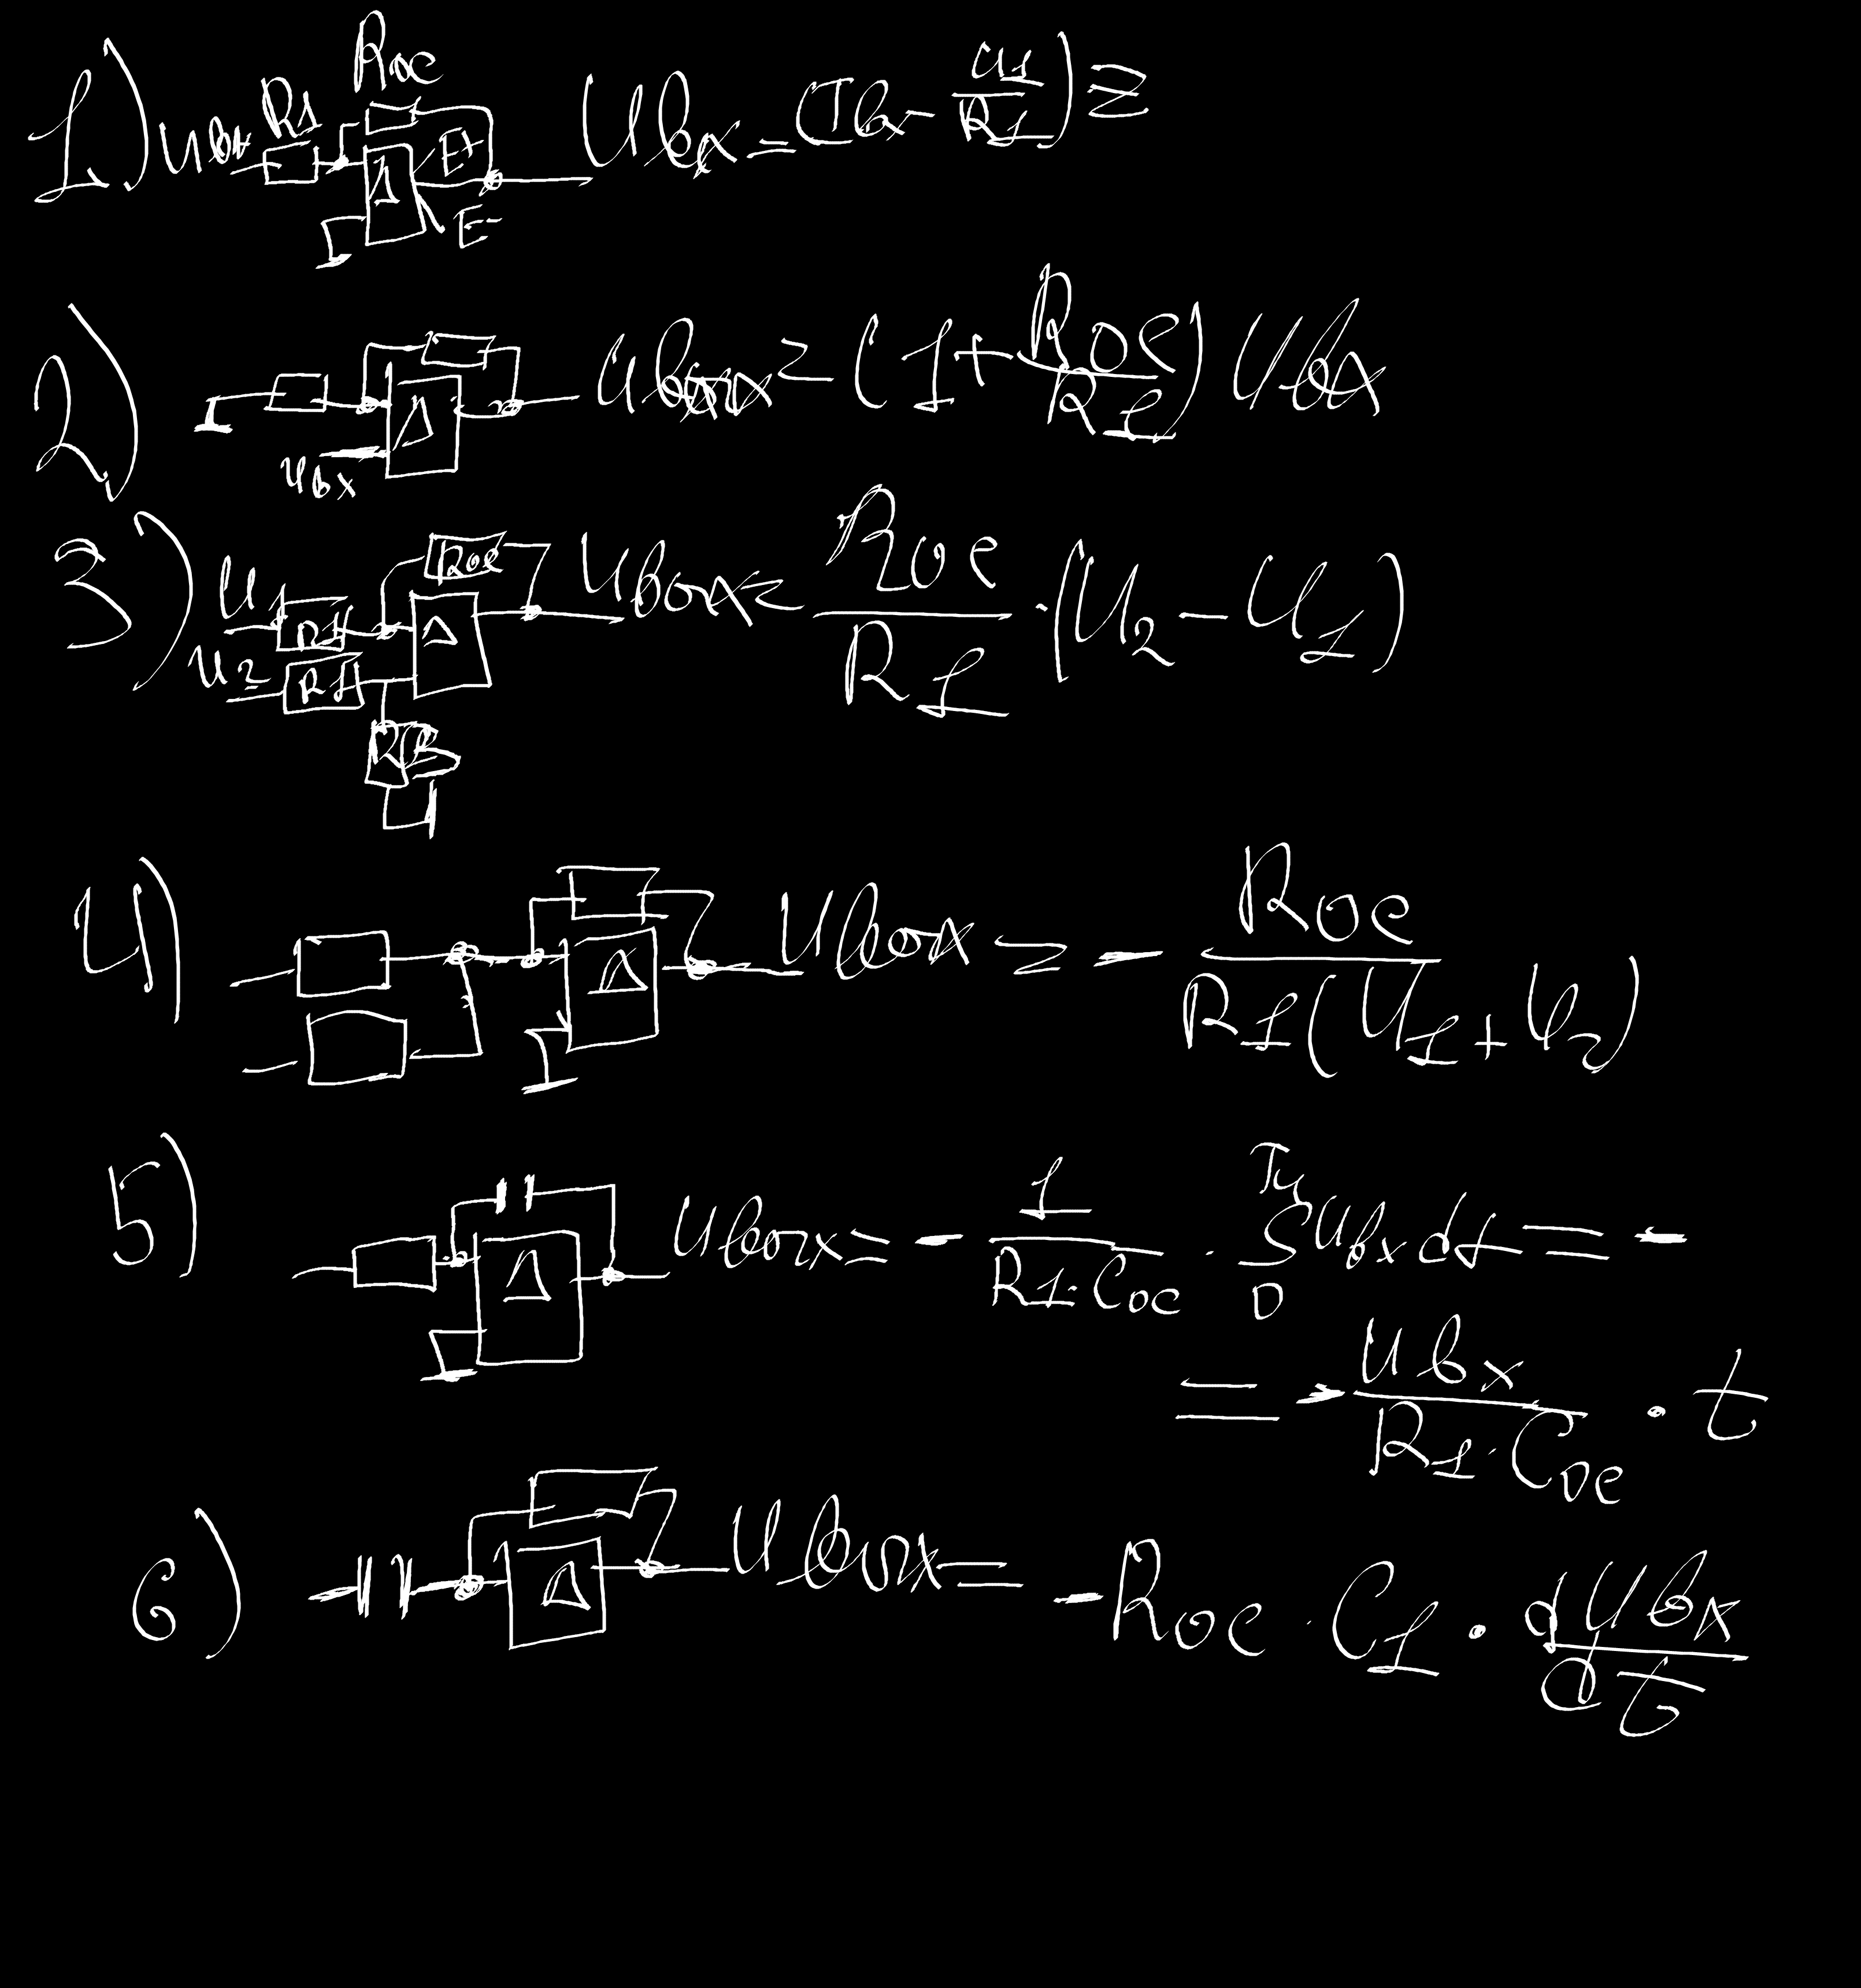 1) Uвх R1 Roc E+ E- Uвх = (Iвх - U1/R1) =
2) Uвх Uвых = (1 + Roc/R1) Uвх
3) U1 R1 Roc U2 R1 R2 Uвых = Roc/R1 · (U2 - U1)
4) Uвых = - Roc/R1(U1 + U2)
5) Uвых = - 1/R1·Coc · ∫0 Uвх dt = -
= - Uвх/R1·Coc · t
6) Uвых = -Roc · C1 · dUвх/dt